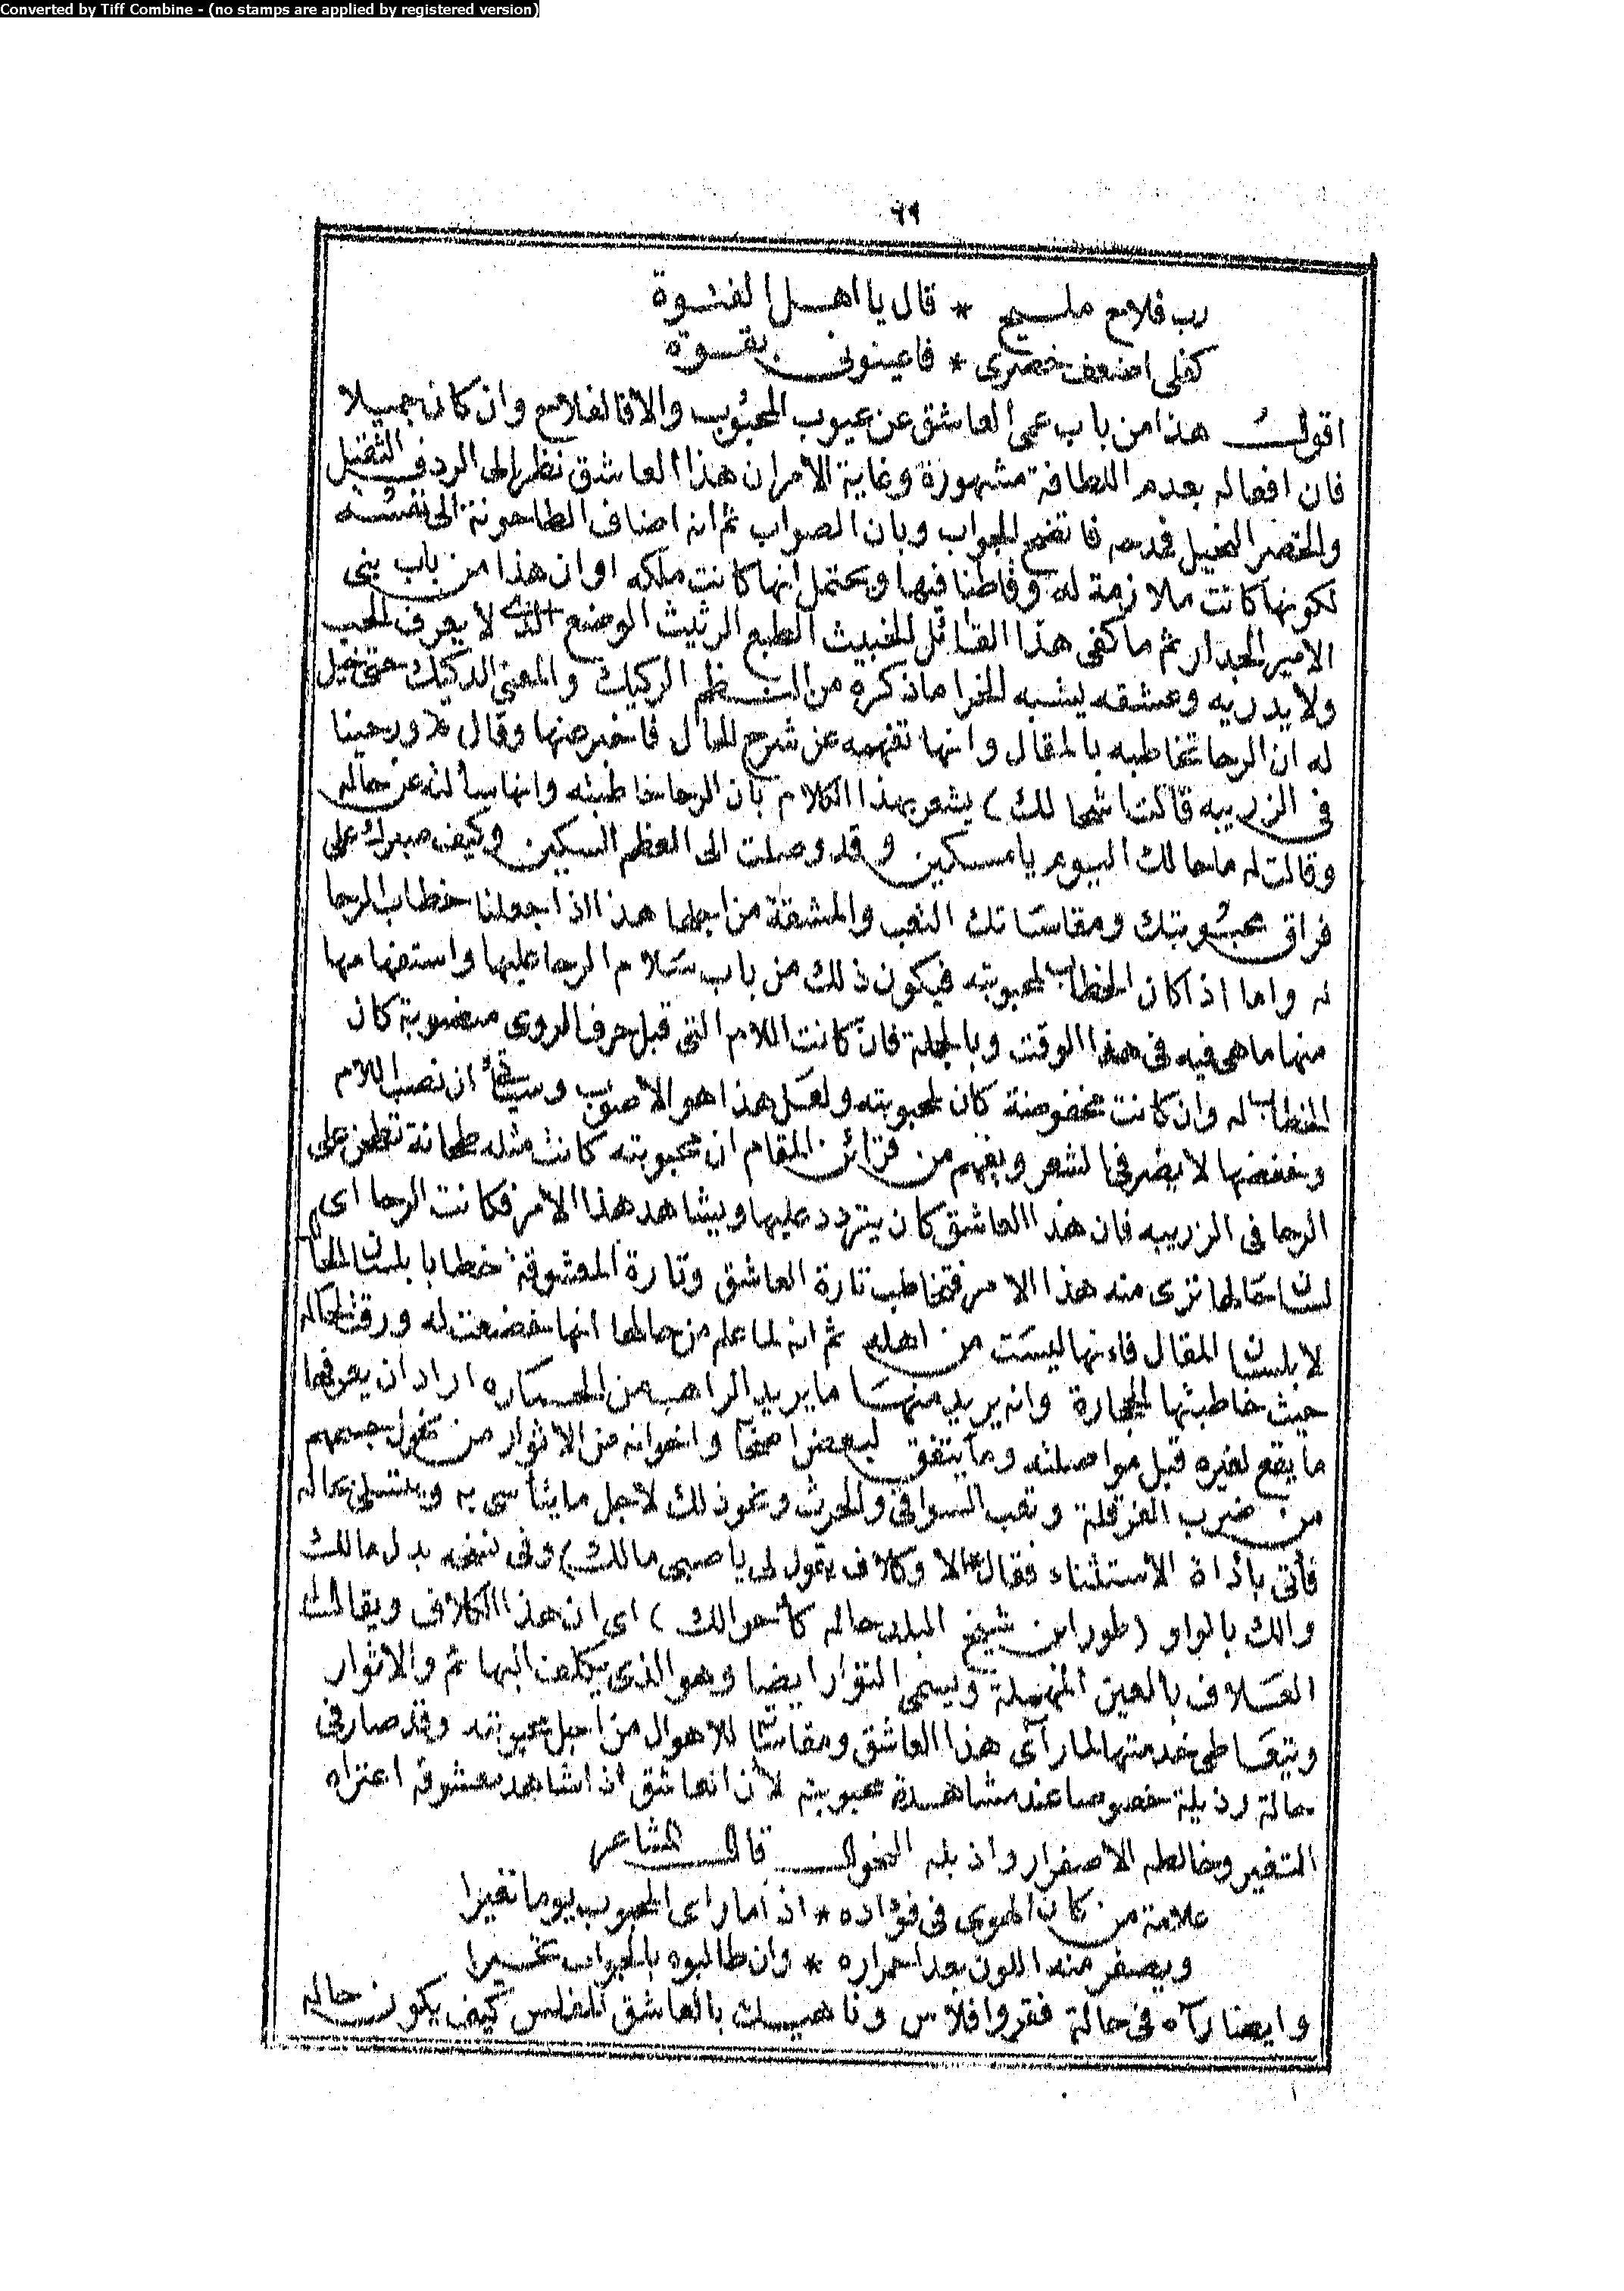 Converted by Tiff Combine - (no stamps are applied by registered version)
٦٩
رب فلاح مليح * قال يا اهل الفتوة
كفلى اضعف خصرى * فاعينونى بقوة
اقول هذا من باب عمى العاشق عن عيوب المحبوب والا فالفلاح وان كان جميلا
فان افعاله بعدم اللطافة مشهورة وغاية الامر ان هذا العاشق نظر الى الردف الثقيل
والخصر النحيل فمدحه فاتضح الجواب وبان الصواب ثم انه اضاف الطاحونة الى نفسه
لكونها كانت ملازمة له وقاطنا فيها ويحتمل انها كانت ملكه او ان هذا من باب بنى
الامير الجدار ثم ما كفى هذا القائل الخبيث الطبع الرثيث الوضع الذى لا يعرف الحب
ولا يدريه وعشقه يشبه الخرا ما ذكره من النظم الركيك والمعنى الدكيك حتى تخيل
له ان الرحا تخاطبه بالمقال وانها تفهمه عن شرح الحال فاخبر عنها وقال (ورحينا
فى الزريبه قالت اشحا لك) يشعر بهذا الكلام بان الرحا خاطبته وانها سألته عن حاله
وقالت له ما حالك اليوم يا مسكين وقد وصلت الى العظم السكين وكيف صبرك على
فراق محبوبتك ومقاساتك التعب والمشقة من اجلها هذا اذا جعلنا خطاب الرحا
له واما اذا كان الخطاب لمحبوبته فيكون ذلك من باب سلام الرحا عليها واستفهامها
منها ما هى فيه فى هذا الوقت وبالجملة فان كانت اللام التى قبل حرف الروى منصوبة كان
الخطاب له وان كانت مخفوضة كان لمحبوبته ولعل هذا هو الاصوب وسيأتى ان نصب اللام
وخفضها لا يضر فى الشعر ويفهم من قرائن المقام ان محبوبته كانت مثله طحانة تطحن على
الرحا فى الزريبه فان هذا العاشق كان يتردد عليها ويشاهد هذا الامر فكانت الرحا اى
لسان حالها ترى منه هذا الامر فتخاطب تارة العاشق وتارة المعشوقة خطابا بلسان الحال
لا بلسان المقال فانها ليست من اهله ثم انه لما علم من حالها انها خضعت له ورقت لحاله
حيث خاطبتها الحجارة وانه يريد منها ما يريد الراهب من الحساره اراد ان يعرفها
ما يقع لغيره قبل مواصلته وما يتفق لبعض اصحابه واخوانه من الاثوار من نحول جسمهم
من ضرب الفرقلة وتعب السواقى والحرث ونحو ذلك لاجل ما يتأسى به ويتسلى بحاله
فأتى بأداة الاستثناء فقال (الا وكلاف يقول لى يا صبى مالك) وفى نسخه بدل مالك
والك بالواو (طور ابن شيخ البلد حاله كأحوالك) اى ان هذا الكلاف ويقال له
العلاف بالعين المهملة ويسمى التوار ايضا وهو الذى يكلف البهائم والاثوار
ويتعاطى خدمتها لما رآى هذا العاشق ومقاساته للاهوال من اجل محبوبته وقد صار فى
حالة رذيلة خصوصا عند مشاهدة محبوبته لأن العاشق اذا شاهد معشوقه اعتراه
التغير وخالطه الاصفرار واذبله النحول قال الشاعر
علامة من كان الهوى فى فؤاده * اذا ما راى المحبوب يوما تغيرا
ويصفر منه اللون بعد احمراره * وان طالبوه بالجواب تحيرا
وايضا رآه فى حالة فقر وافلاس وناهيك بالعاشق المفلس كيف يكون حاله